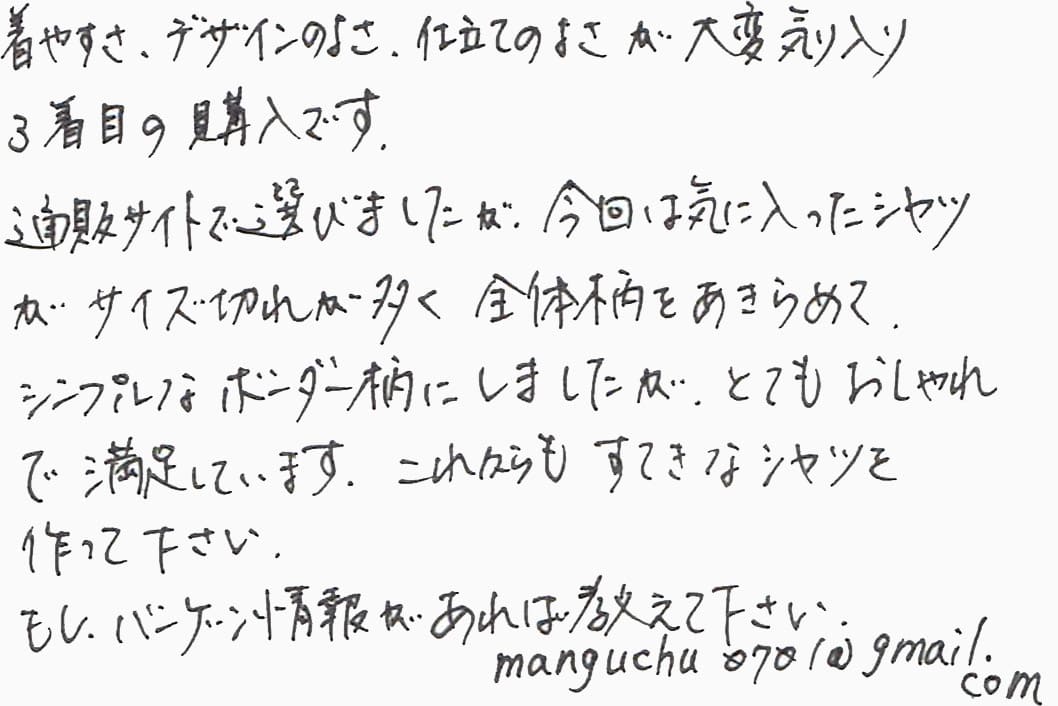 着やすさ、デザインのよさ、仕立てのよさが大変気り入り
3着目の購入です。
通販サイトで選びましたが、今回は気に入ったシャツ
がサイズ切れが多く全体柄をあきらめて、
シンプルなボーダー柄にしましたが、とてもおしゃれ
で満足しています。これからもすてきなシャツを
作って下さい。
もし、バーゲン情報があれば教えて下さい。
manguchu0701@gmail.
com